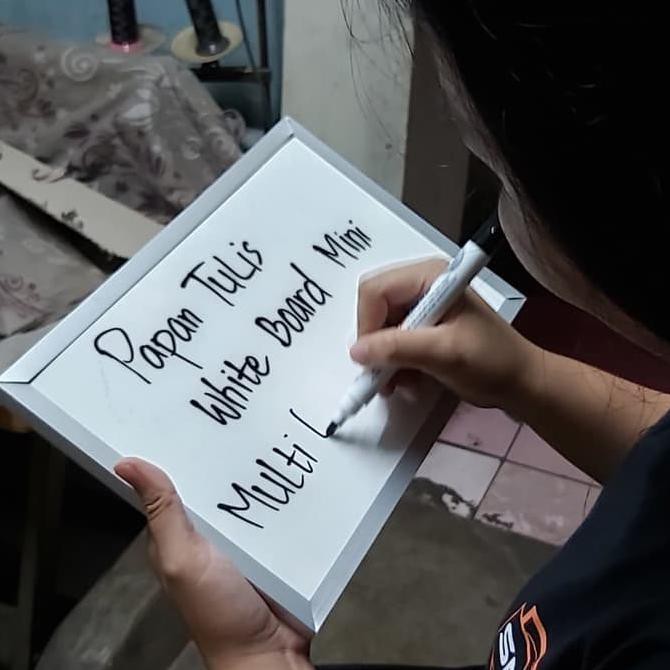 Papan Tulis
White Board Mini
Multi